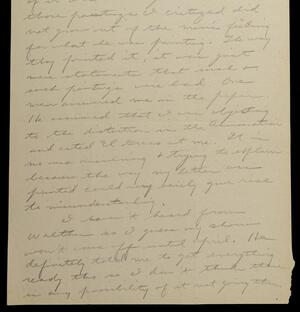 those paintings I criticized did
not grow out of the man's feeling
for what he was painting. The way
they painted it, it was just
mere statements that such &
such paintings were bad. One
man answered me on the paper.
He assumed that I was objecting
to the distortion in the
and cited El Greco at me. It in
no was annoying & trying to explain
because the way my letter was
printed could very easily give rise
to misunderstanding.
I haven't heard from
Walther so I guess my show
won't come off until April. He
definitely told me to get everything
ready tho so I don't think there
is any possibility of it not going thru